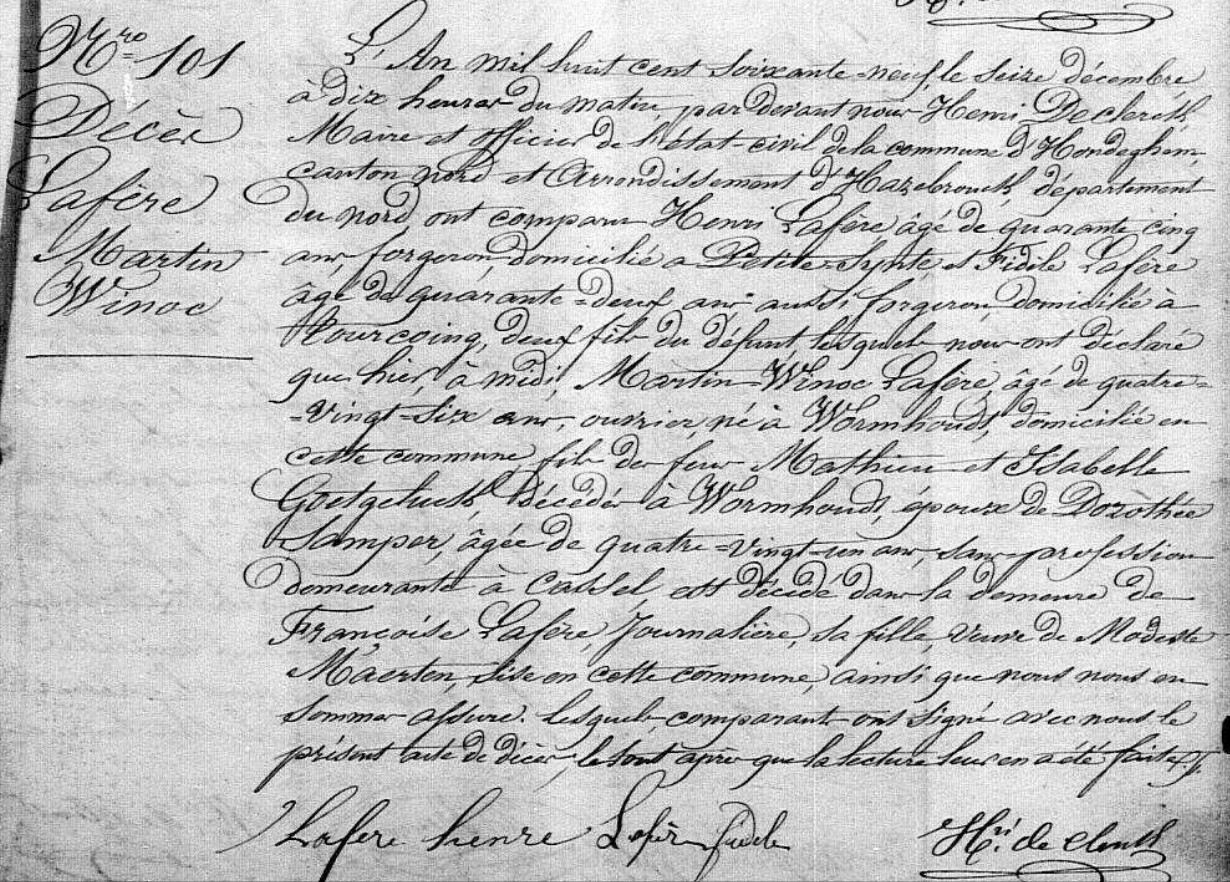 Nro 101
Décès
Lafère
Martin
Winoc
L'An mil huit cent soixante-neuf, le seize décembre
à dix heures du matin, par devant nous Henri Declerck
Maire et officier de l'état-civil de la commune d'Hondeghem,
canton nord et Arrondissement d'Hazebrouck, département
du nord, ont comparu Henri Lafère âgé de quarante cinq
ans, forgeron, domicilié a Petite-Synte et Fidèle Lafère
âgé de quarante-deux ans aussi forgeron, domicilié à
Tourcoing, deux fils du défunt lesquels nous ont déclaré
que hier, à midi, Martin-Winoc Lafère, âgé de quatre-
-vingt-six ans, ouvrier, né à Wormhoudt, domicilié en
cette commune, fils des feus Mathieu et Isabelle
Goetgeluck, décédés à Wormhoudt, époux de Dorothée
Samper, âgée de quatre-vingt-un ans, sans profession
demeurante à Cassel est décédé dans la demeure de
Françoise Lafère, Journalière, sa fille, veuve de Modeste
Maerten, sise en cette commune, ainsi que nous nous en
sommes assuré. Lesquels comparants ont signé avec nous le
présent acte de décès, le tout après que la lecture leur en a été faite
Lafere henre Lafère fidele
Hri de clerck